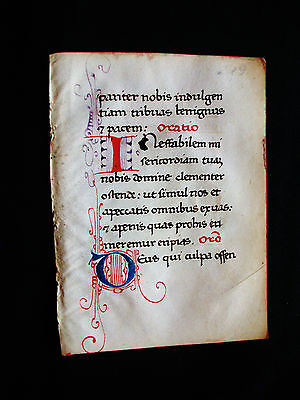 pariter nobis indulgen
tiam tribuas benignus
⁊ pacem: Oratio
Ineffabilem mi
sericordiam tuam
nobis domine clementer
ostende: ut simul nos et
apeccatis omnibus exuas:
⁊ apenis quas pro his
meremur eripias. Orõ
Deus qui culpa offen